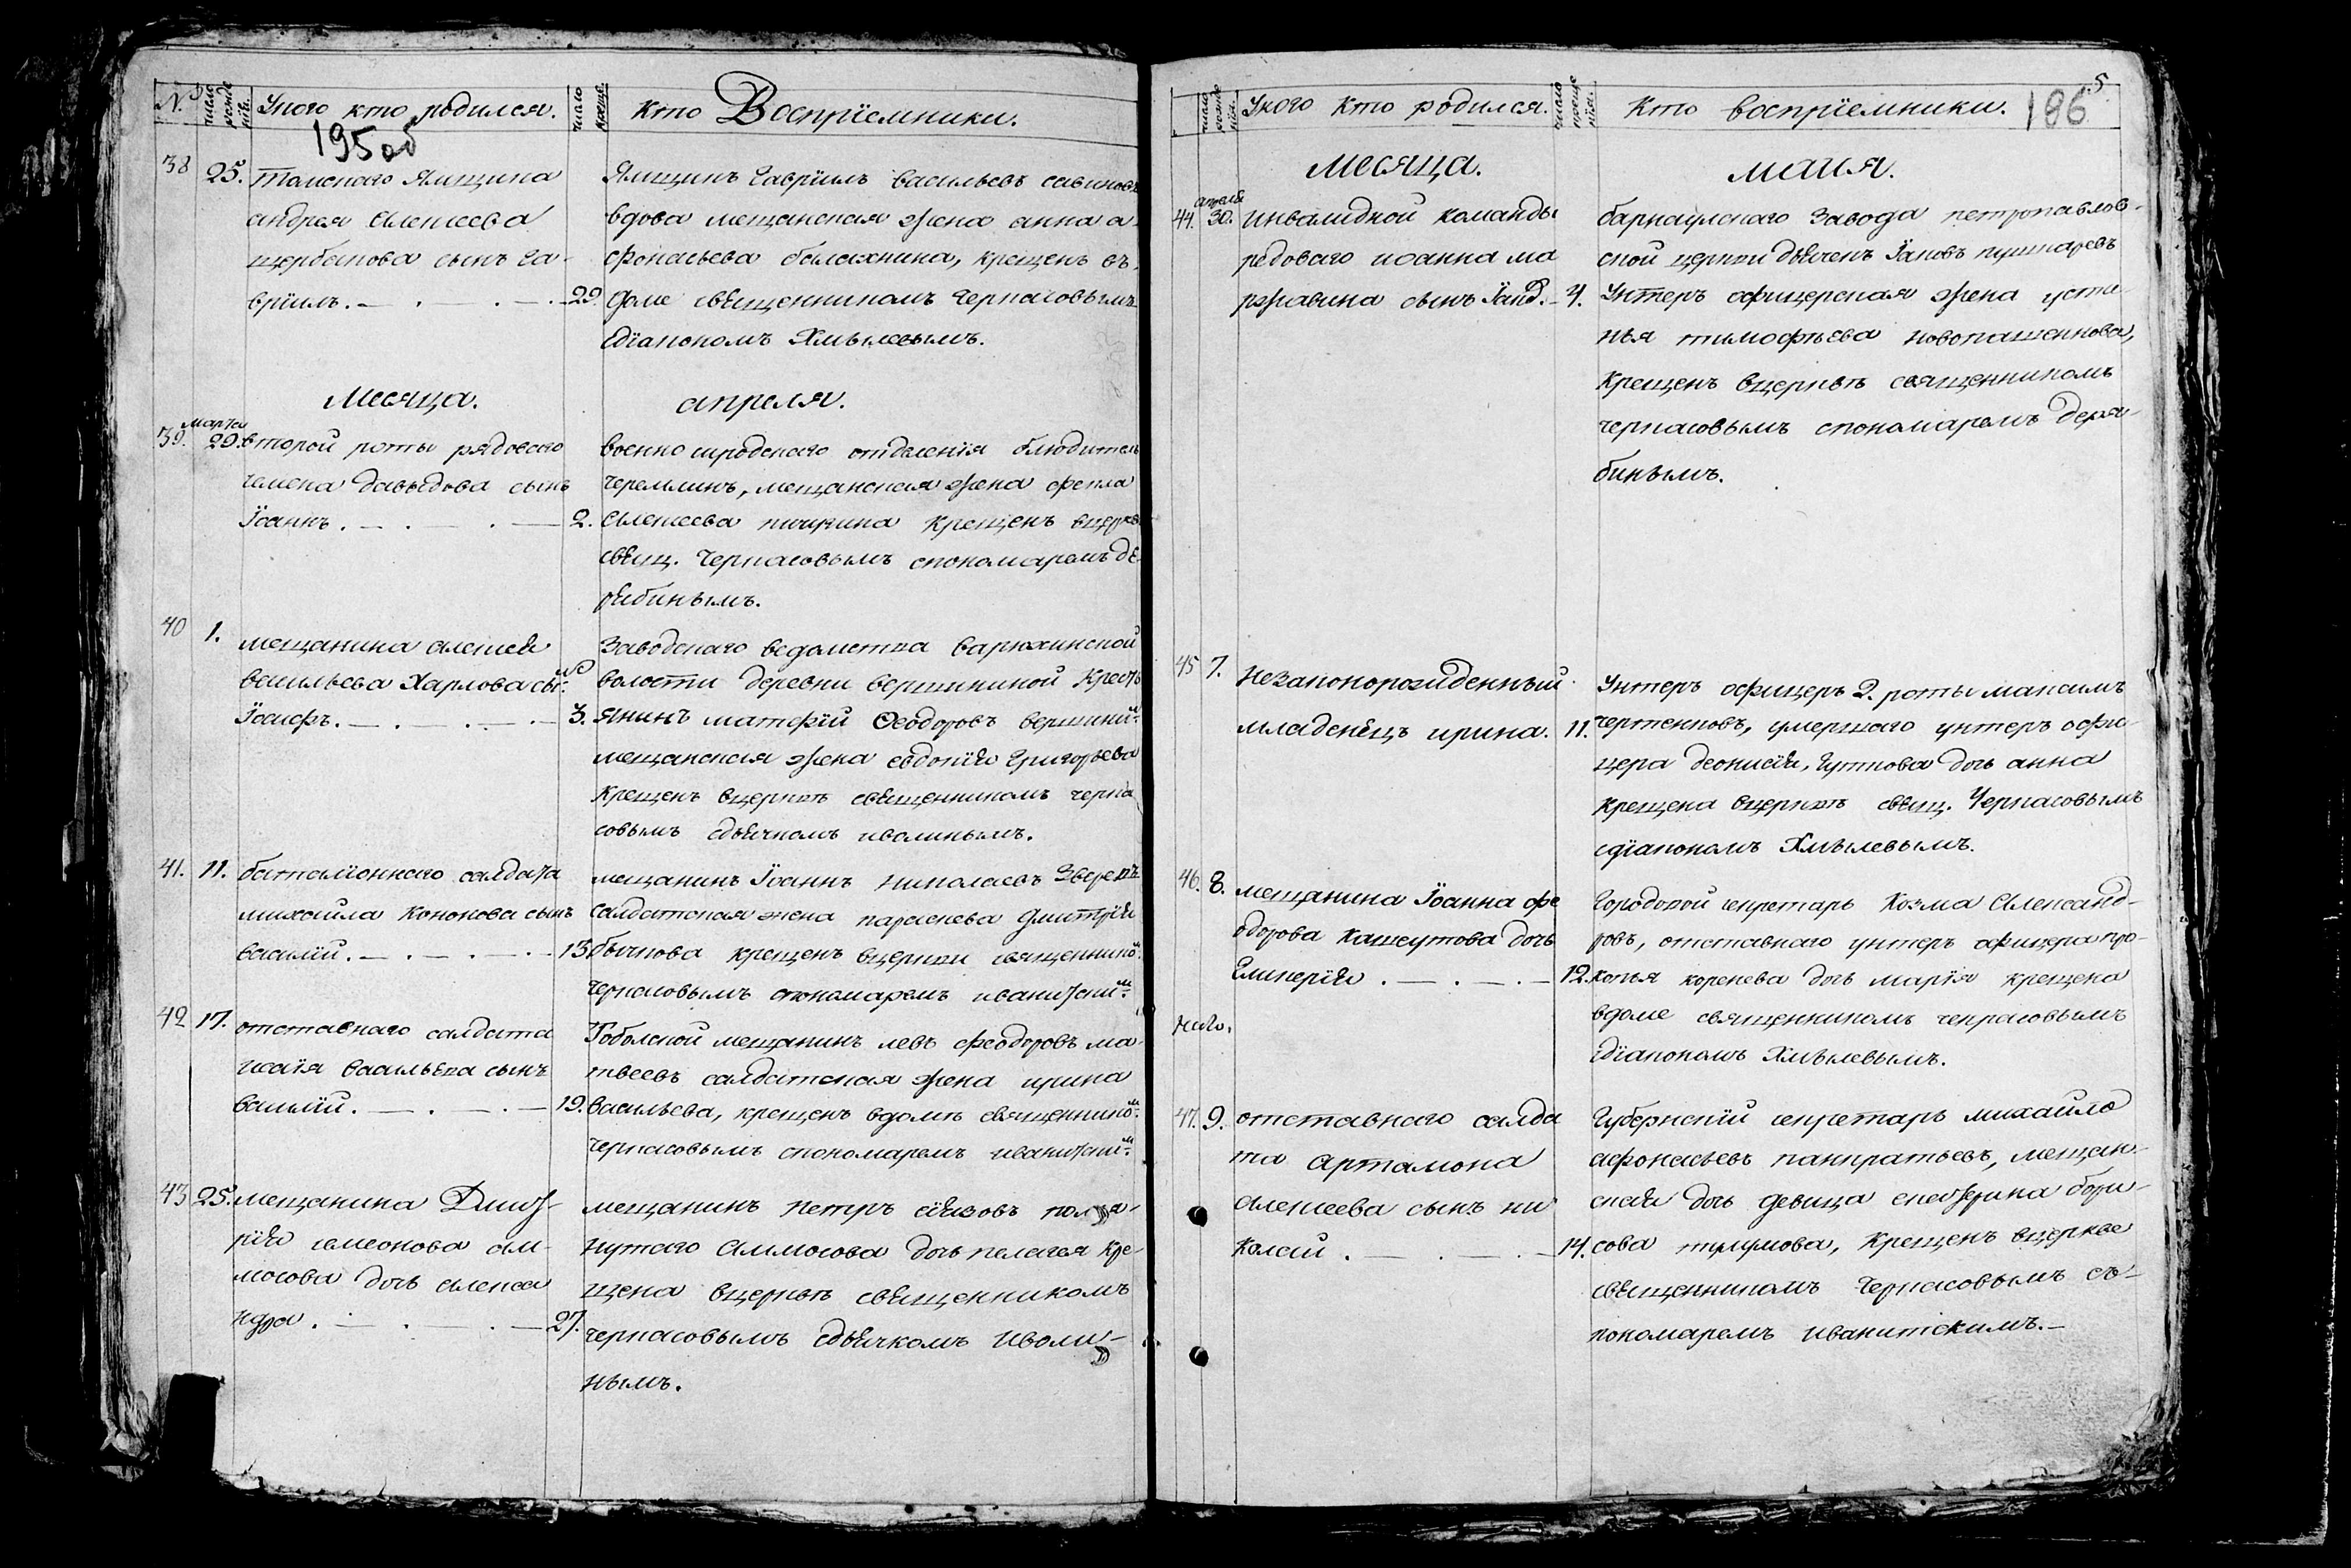 № число рожде нiя. Укого кто родился. число креще. Кто Воспрiемники.
195 об
38 25. Томского Ямщика
андрея Алексеева
щербакова сынъ га-
врiилъ. 29.
Ямщикъ Гаврiилъ васильевъ савиновъ
вдова мещанская жена анна а-
фонасьева балахнина, крещенъ въ
доме священникомъ Черкасовымъ
сдiакономъ Хмылевымъ.
Месяца. апреля.
39. марта 29. второй роты рядоваго
семена давыдова сынъ
Iоаннъ. 2.
военно сиродскаго отделенiя блюдитель
черемлинъ, мещанская жена фекла
Алексеева крещенъ вцеркве
свящ. Черкасовымъ спономаремъ де-
рябинымъ.
40 1. мещанина алексея
васильева Харлова сынъ
Iосифъ. 3.
Заводскаго ведомства варюхинской
волости деревни вершининой Кресть
янинъ матфiй Ѳеодоровъ вершинин
мещанская жена евдокiя Григорьева
крещенъ вцеркве священникомъ черка
совымъ сдьячкомъ иволинымъ.
41. 11. баталiоннаго салдата
михайла Кононова сынъ
василiй. 13.
мещанинъ Iоаннъ николаевъ Зверевъ
салдатская жена параскева дмитрiя
бычкова крещенъ вцеркви священнико
черкасовымъ спономаремъ иваницким
42 17. отставнаго салдата
исаiя васильева сынъ
василiй. 19.
Тобольской мещанинъ левъ феодоровъ ма-
твеевъ салдатская жена ирина
васильева, крещенъ вдомѣ священнико
черкасовымъ спономаремъ иваницким
43 25. мещанина Дмит-
рiя симеонова ам-
мосова дочь алекса
ндра. 27.
мещанинъ петръ помя-
нутаго Аммосова дочь пелагея кре-
щена вцерквѣ священникомъ
черкасовымъ сдьячкомъ Иволи-
нымъ.
число рожде нiя. Укого кто родился. число креще нiя. Кто воспрiемники. 196 5
месяца. маiя.
44. апреля 30. инвалидной команды
редоваго иоанна ма
ржавина сынъ Iаковъ. 4.
барнаулскаго Завода петропавлов-
ской церкви дьячекъ Iаковъ пушкаревъ
Унтеръ офицерская жена усти-
нья тимофѣева новопашеннова,
крещенъ вцерквѣ священникомъ
черкасовымъ спономаремъ деря-
бинымъ.
45 7. незаконорожденный
младенецъ ирина. 11.
Унтеръ офицеръ 2. роты максимъ
чертенковъ, умершаго унтеръ офи-
цера деонисiя, Гуткова дочь анна
крещена вцерквѣ свящ. Черкасовымъ
сдiакономъ Хмылевымъ.
46. 8. мещанина Iоанна фе
одорова кашкутова дочь
Гликерiя. 12.
Городовой секретарь Козма Александ-
ровъ, отставнаго унтеръ афицера про-
копья коренева дочь марiя крещена
вдоме священникомъ черкасовымъ
сдiакономъ Хмылевымъ.
47. 9. отставнаго салда
та артамона
алексеева сынъ ни
колай. 14.
Губернскiй секретарь михайло
афонасьевъ панкратьевъ, мещан-
ская дочь девица екатерина бори-
сова крещенъ вцеркве
священникомъ Черкасовымъ съ-
пономаремъ Иваницкимъ.